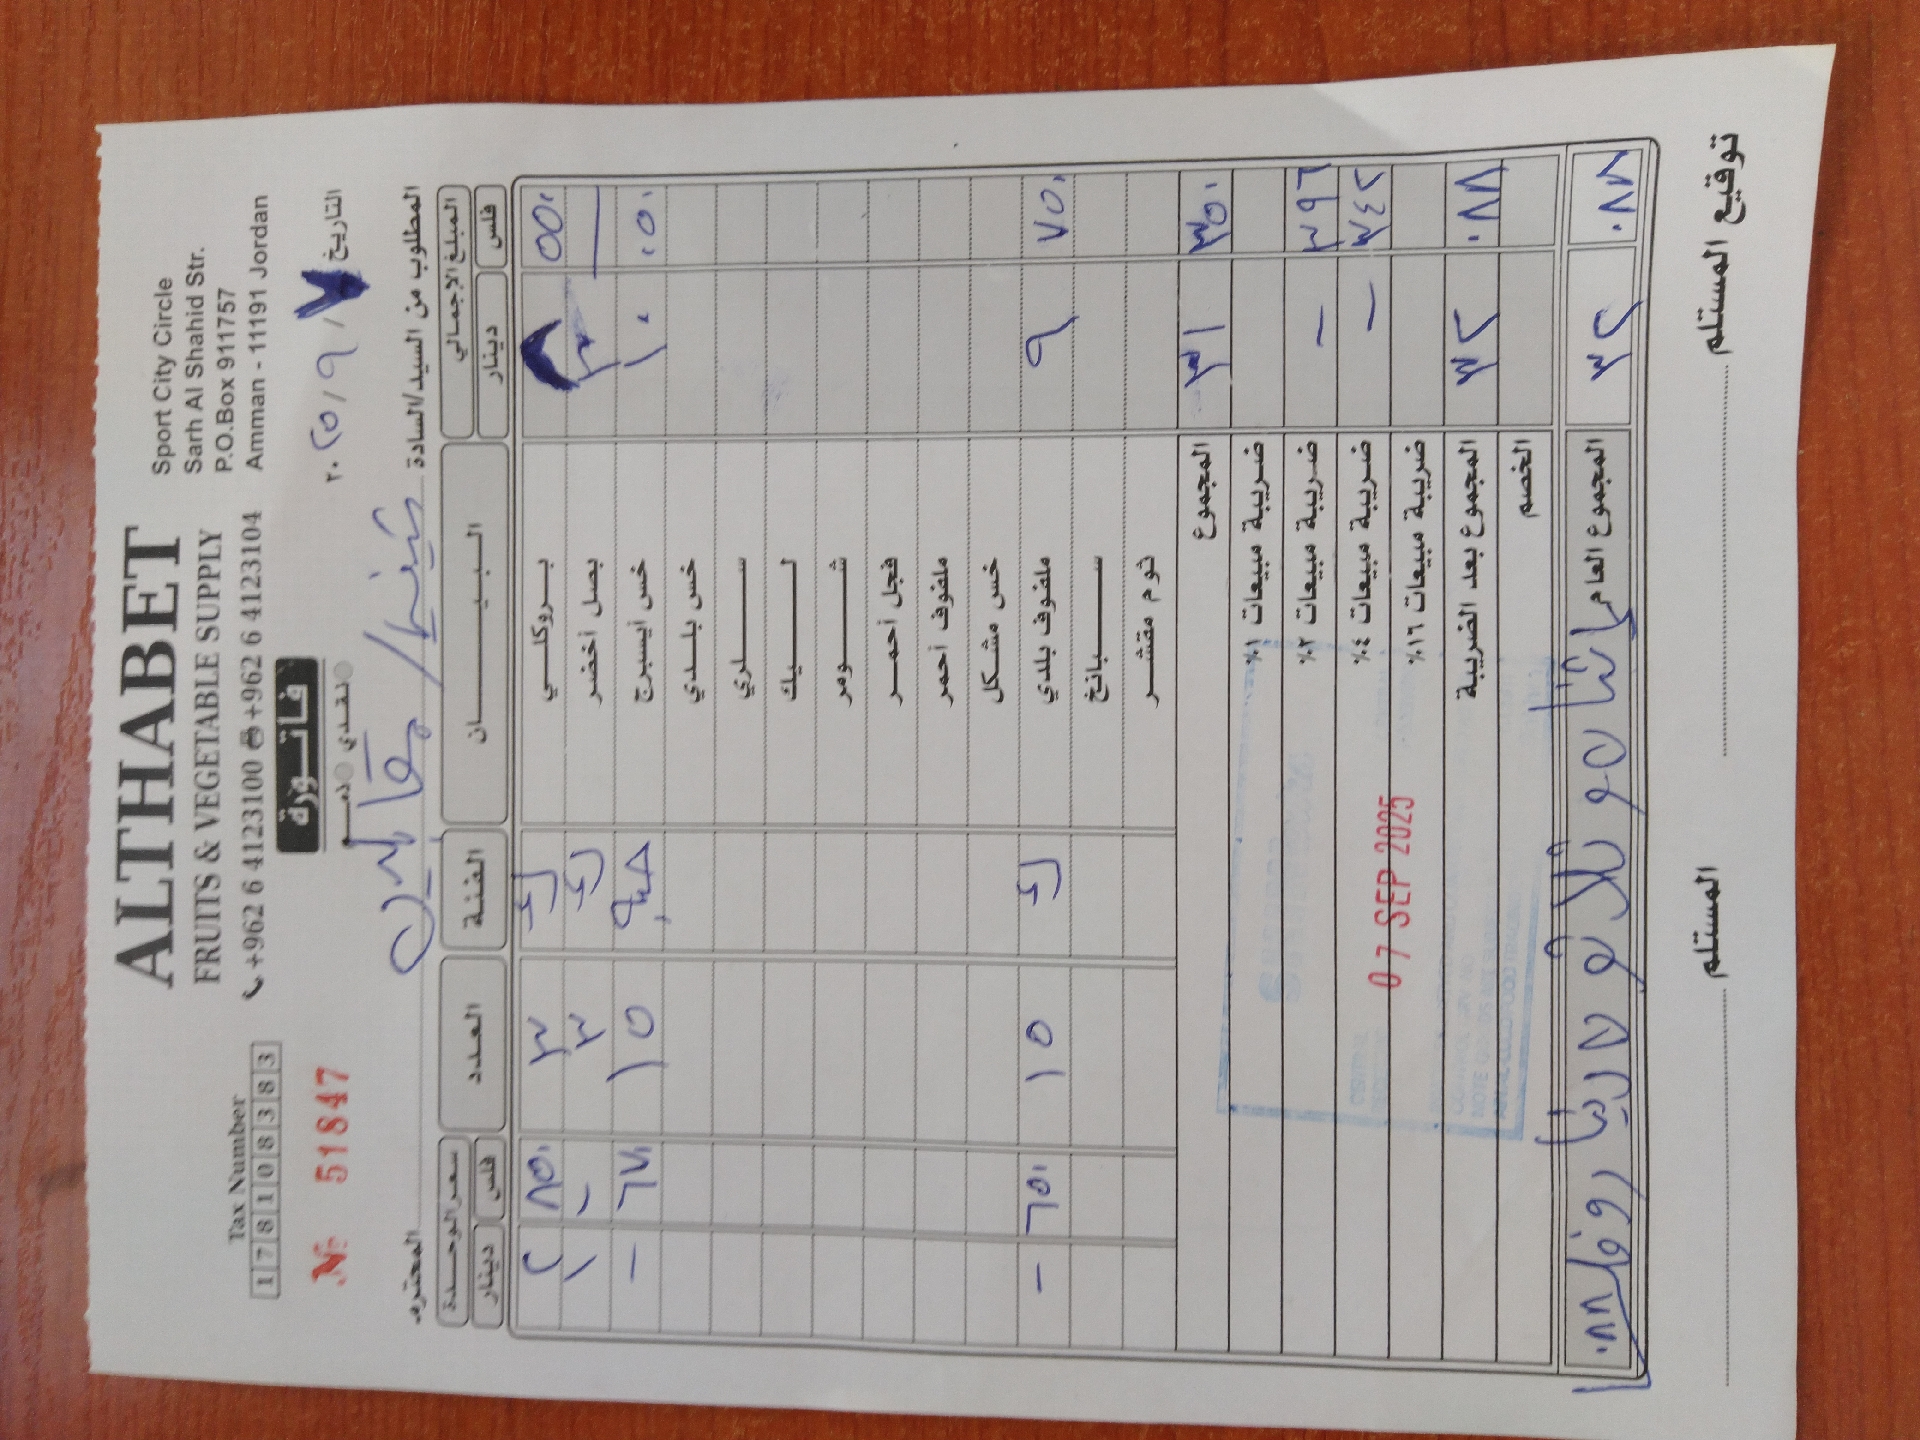 ALTHABET
FRUITS & VEGETABLE SUPPLY
+962 6 4123100 +962 6 4123104
Sport City Circle
Sarh Al Shahid Str.
P.O.Box 911757
Amman - 11191 Jordan
Tax Number
1 7 8 1 0 8 3 8 3
№ 51847
فاتورة
نقدي ذمم
التاريخ ٧ / ٩ / ٢٠٢٥
المطلوب من السيد/السادة
المحترم
المبلغ الإجمالي البيان الفئة العدد سعر الوحدة
دينار فلس دينار فلس
بروكلي ٨ ٥٥٠ ك ٣ ٢ ٨٥٠
بصل أخضر ٣ — ك ٣ ١ -
خس ايسبرج ١٠ ٠٥٠ حبة ١٥ - ٦٧٠
خس بلدي
سلري
ليك
شومر
فجل أحمر
ملفوف أحمر
خس مشكل
ملفوف بلدي ٩ ٧٥٠ ك ١٥ - ٦٥٠
سبانخ
ثوم مقشر
المجموع ٣١ ٣٥٠
ضريبة مبيعات ١%
ضريبة مبيعات ٢% - ٣٩٦
ضريبة مبيعات ٤% - ٣٤٢
ضريبة مبيعات ١٦%
المجموع بعد الضريبة ٣٢ ٠٨٨
الخصم
المجموع العام ٣٢ ٠٨٨
07 SEP 2025
المستلم
توقيع المستلم